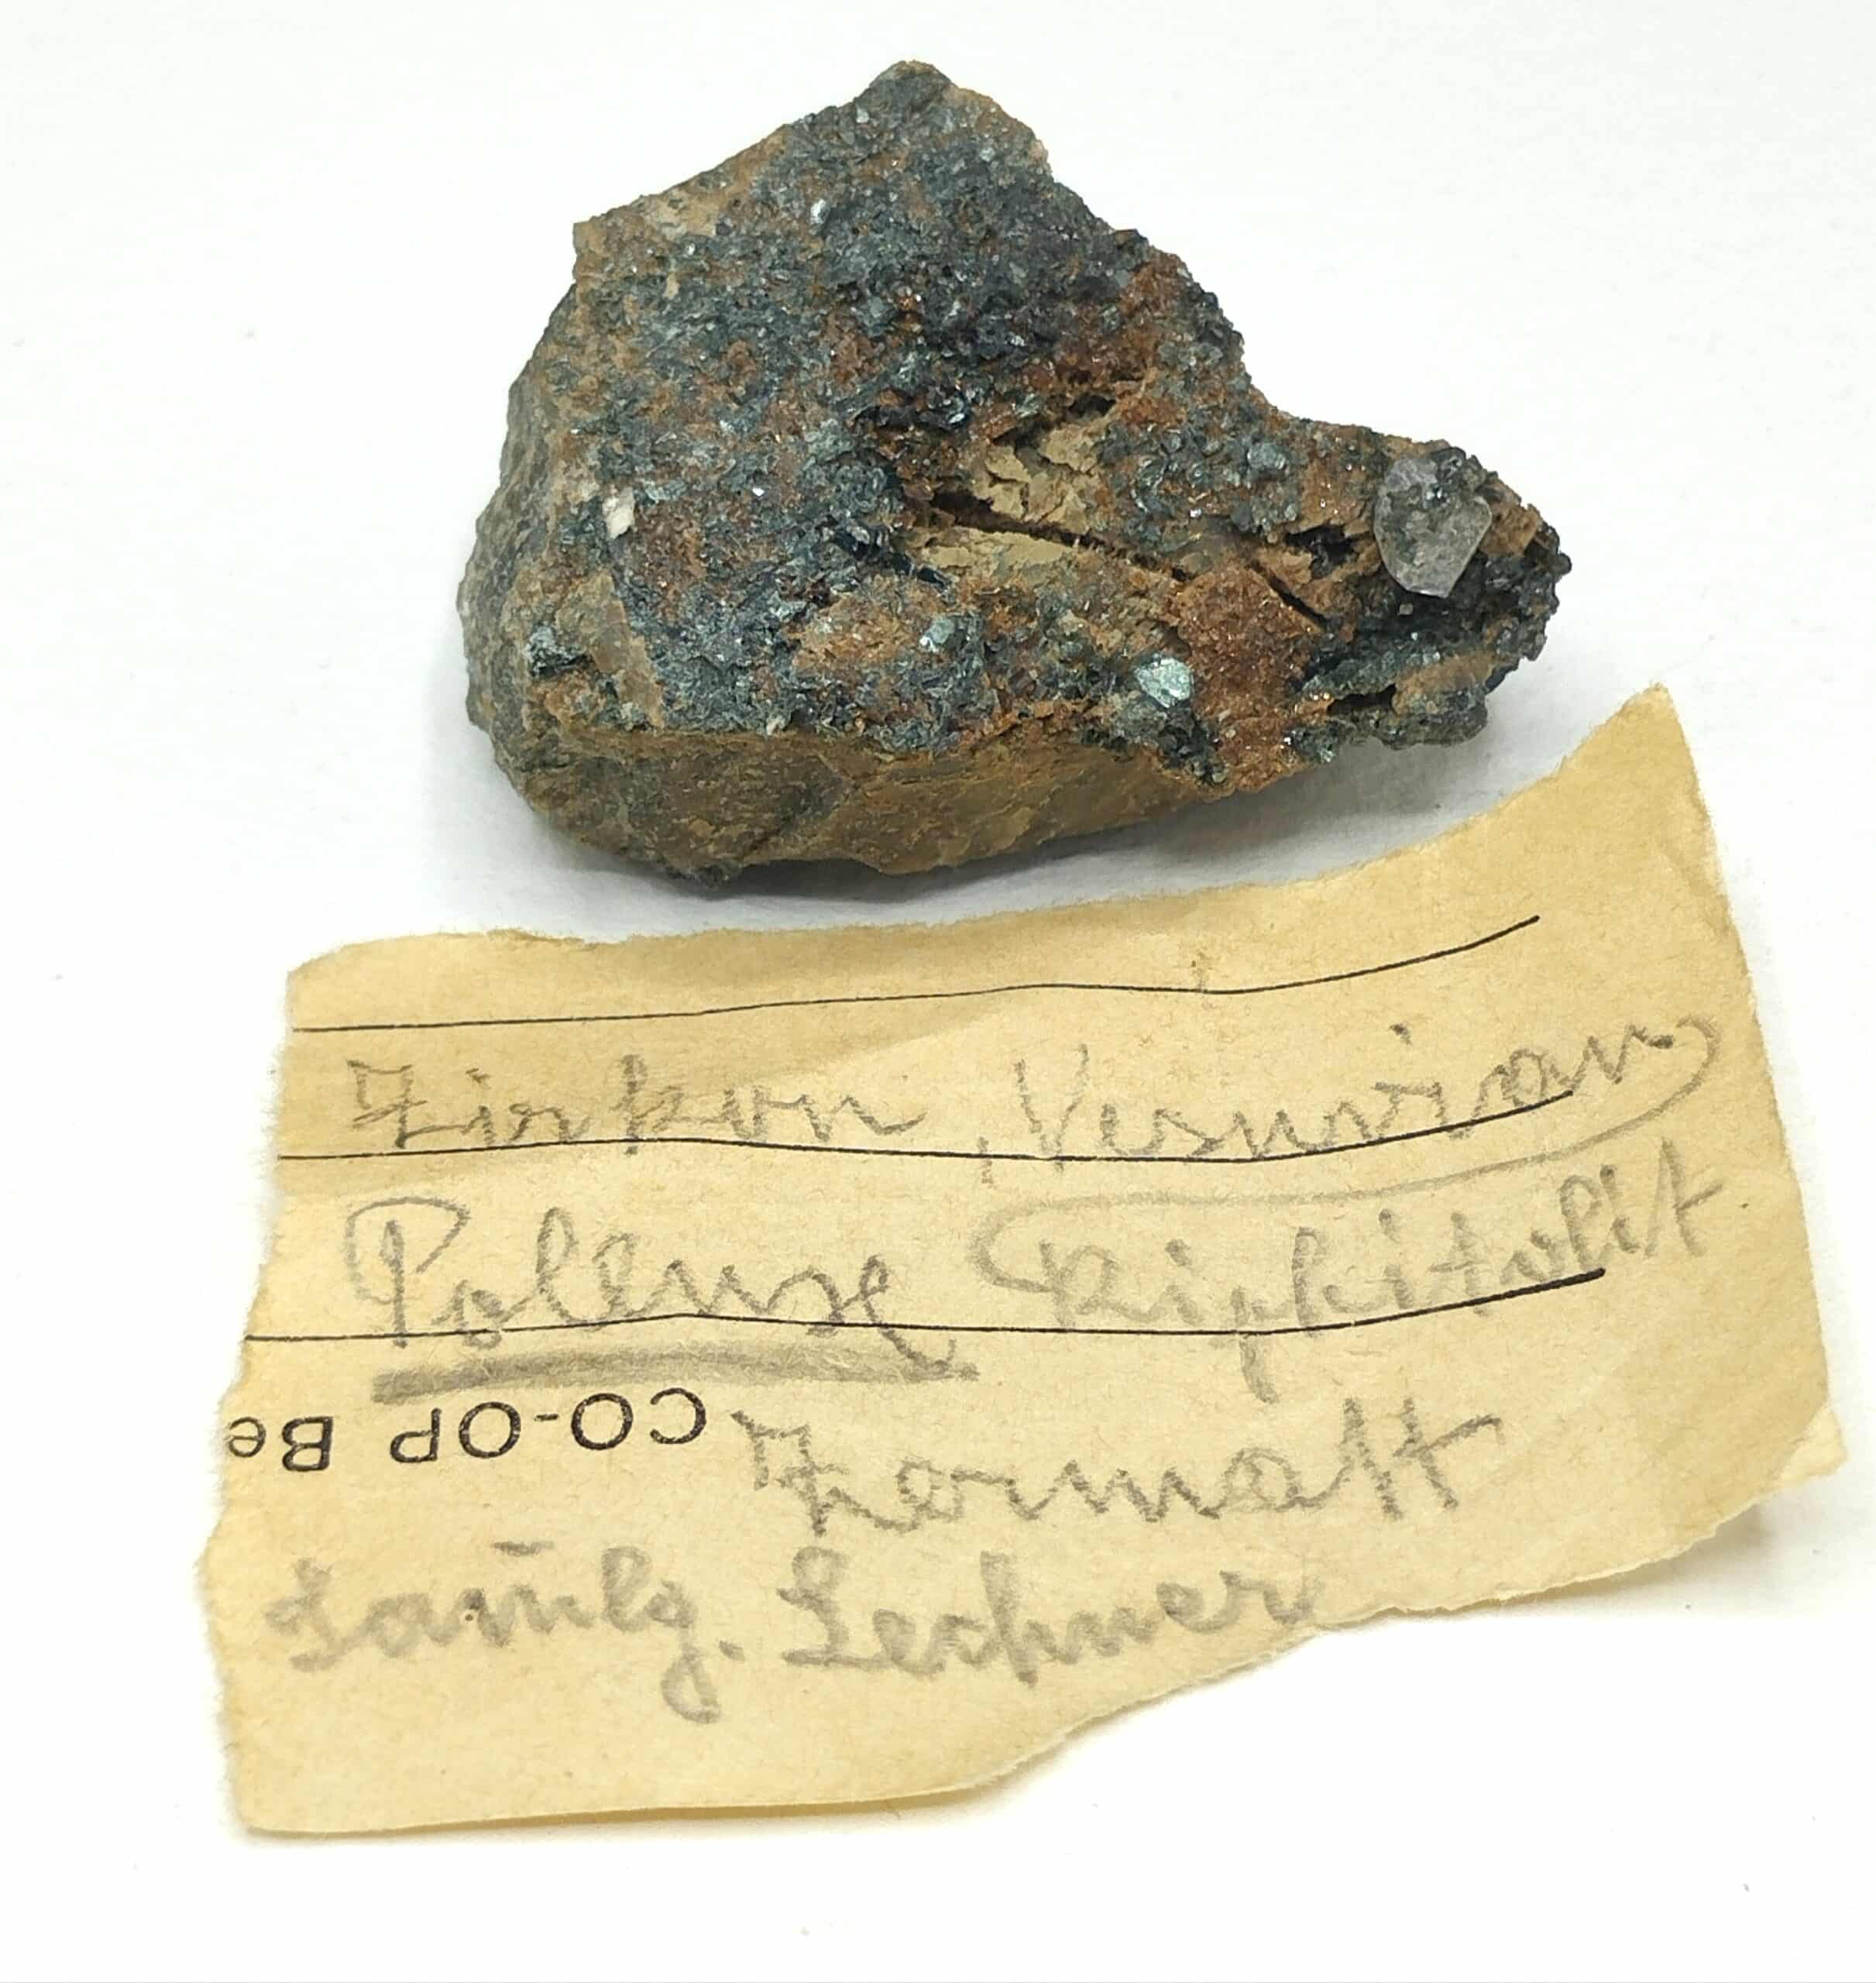 Zirkon, Vesuvian
Pollux Riphitolit
CO-OP Be
Zermatt
Samlg. Lechner